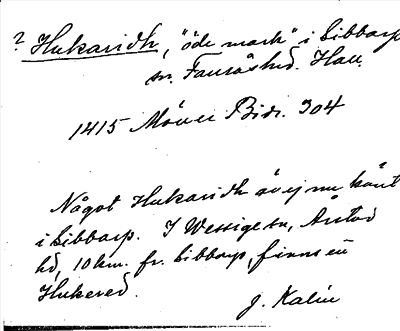 ? Hukaridh, "öde mark" i Sibbarp
sn. Faurås hd. Hall.
1415 Möller Bidr. 304
Något Hukaridh är ej nu känt
i Sibbarp. I Wessige sn, Årstad
hd, 10 km. fr. Sibbarp, finns en
Hukered.
J. Kalén